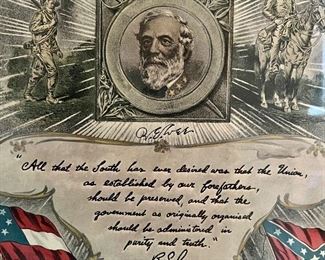 R E Lee
"All that the South has ever desired was that the Union,
as established by our forefathers,
should be preserved, and that the
government as originally organised
should be administered in
purity and truth."
R E L